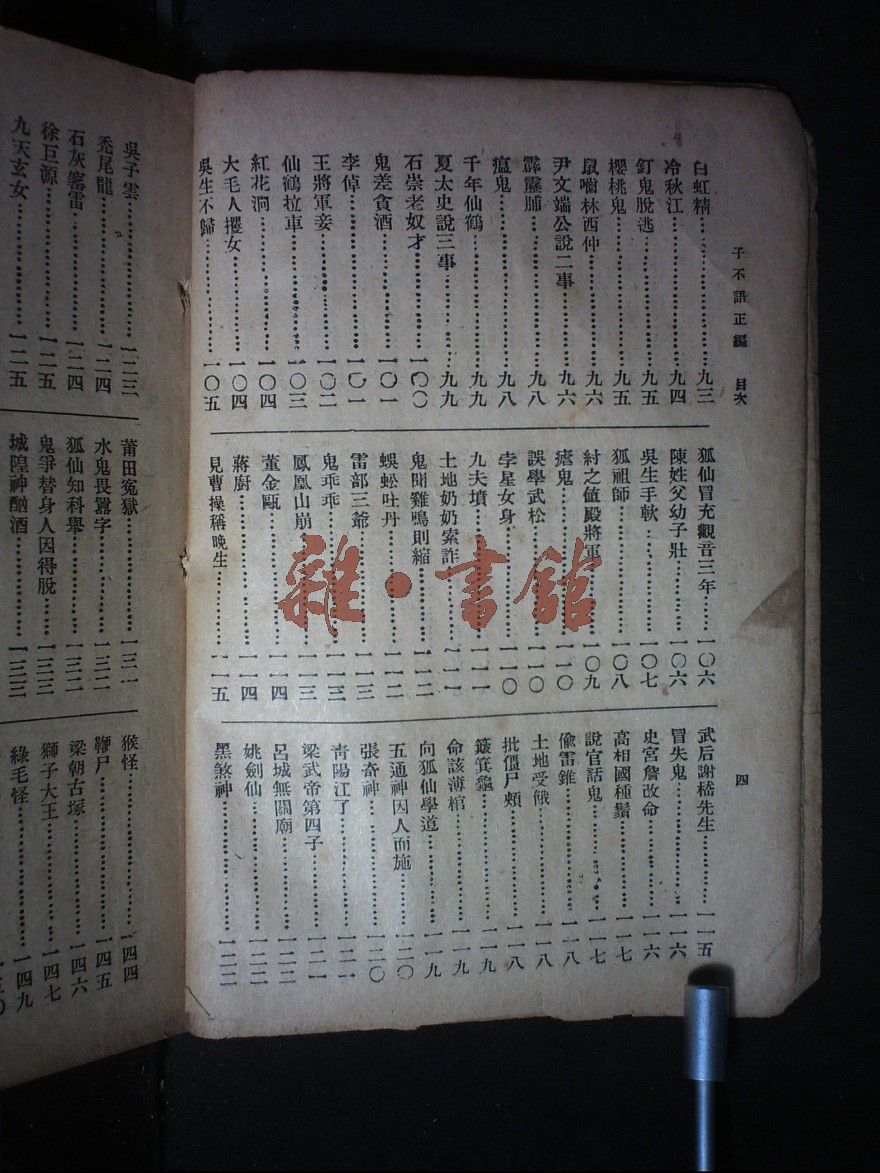 子不語正編　目次
白虹精……九三
冷秋江……九四
釘鬼脫逃……九五
櫻桃鬼……九五
鼠嚙林西仲……九六
尹文端公說二事……九六
霹靂脯……九八
瘟鬼……九八
千年仙鶴……九九
夏太史說三事……九九
石崇老奴才……一〇〇
鬼差貪酒……一〇一
李倬……一〇一
王將軍妾……一〇二
仙鶴拉車……一〇三
紅花洞……一〇四
大毛人攫女……一〇四
吳生不歸……一〇五
狐仙冒充觀音三年……一〇六
陳姓父幼子壯……一〇六
吳生手軟……一〇七
狐祖師……一〇八
紂之值殿將軍……一〇九
瘧鬼……一一〇
誤學武松……一一〇
孛星女身……一一〇
九夫墳……一一一
土地奶奶索詐……一一一
鬼聞雞鳴則縮……一一二
蜈蚣吐丹……一一二
雷部三爺……一一三
鬼乖乖……一一三
鳳凰山崩……一一三
董金甌……一一四
蔣廚……一一四
見曹操稱晚生……一一五
武后謝嵇先生……一一五
冒失鬼……一一六
史宮詹改命……一一六
高相國種鬚……一一七
說官話鬼……一一七
偷雷錐……一一八
土地受餓……一一八
批僵尸頰……一一八
簸箕龜……一一九
命該薄棺……一一九
向狐仙學道……一一九
五通神因人而施……一二〇
張奇神……一二〇
青陽江了……一二一
梁武帝第四子……一二一
呂城無關廟……一二二
姚劍仙……一二二
黑煞神……一二二
四
吳子雲……一二三
禿尾龍……一二四
石灰窰雷……一二四
徐巨源……一二五
九天玄女……一二五
莆田冤獄……一三一
水鬼畏囂字……一三二
狐仙知科舉……一三二
鬼爭替身人因得脫……一三三
城隍神酗酒……一三三
猴怪……一四四
鞭尸……一四五
梁朝古塚……一四六
獅子大王……一四七
綠毛怪……一四九
雜·書館